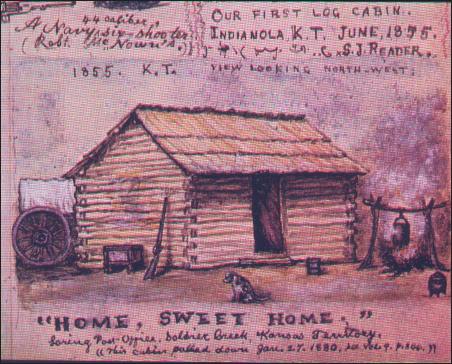 44 calibre,
A Navy six-shooter
(Robt. McNown's.)
OUR FIRST LOG CABIN.
INDIANOLA K.T. JUNE, 1855.
S.J. READER.
1855. K.T.
VIEW LOOKING NORTH-WEST.
"HOME, SWEET HOME."
Loring Post-Office, Soldier Creek, Kansas Territory.
(This cabin pulled down Jan. 27. 1880,